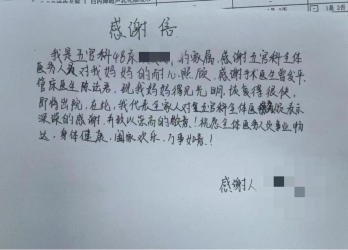 感谢信
我是五官科48床 的家属，感谢五官科全体
医务人员对我妈妈的耐心照顾，感谢手术医生曾安平
管床医生陈法君，现我妈妈得见光明，恢复得很快，
即将出院，在此，我代表全家人对全五官科全体医务人员表示
深深的感谢，并致以崇高的敬意！祝愿全体医务人员事业畅
达，身体健康，阖家欢乐，万事如意！
感谢人